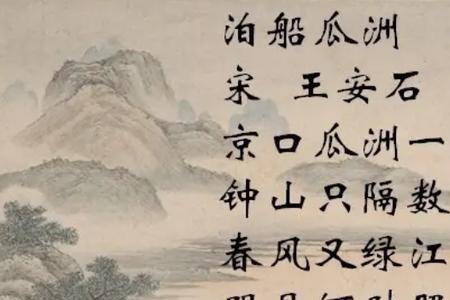 泊船瓜洲
宋 王安石
京口瓜洲一
钟山只隔数
春风又绿江